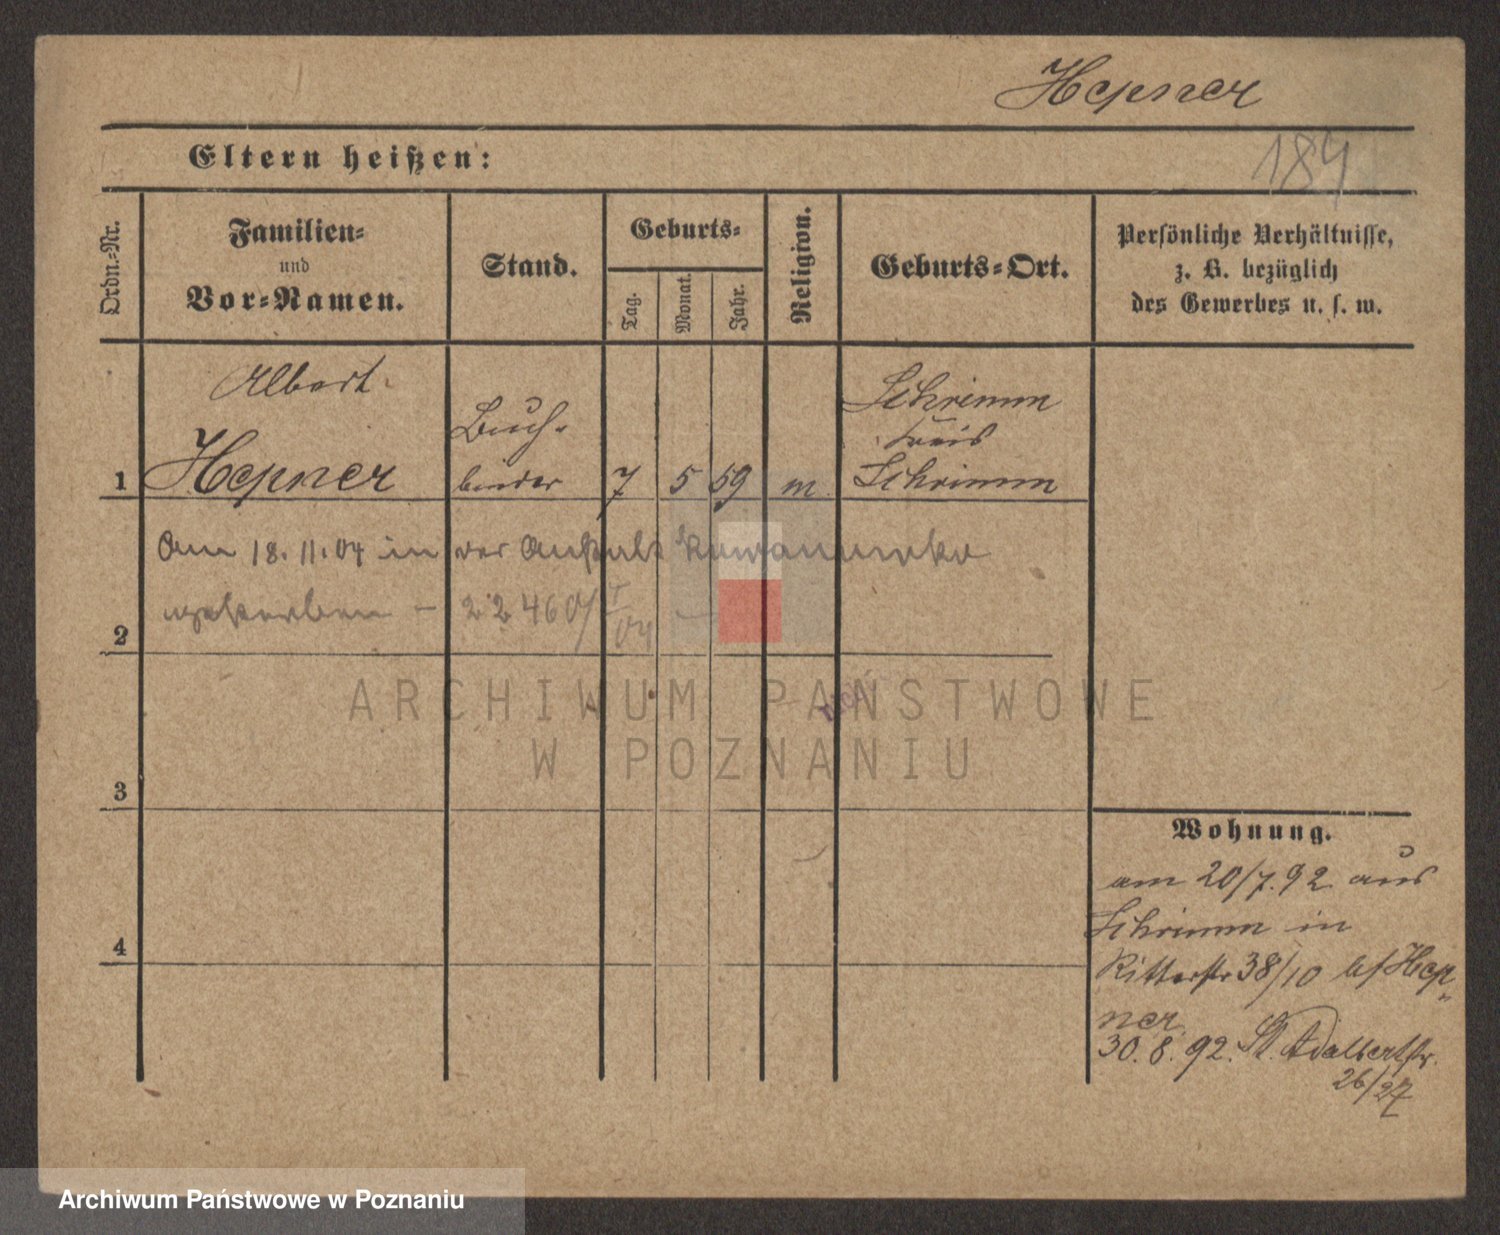 Hepner
184
Eltern heißen:
Ordn.-Nr.
Familien-
und
Vor-Namen.
Stand.
Geburts-
Tag.
Monat.
Jahr.
Religion.
Geburts-Ort.
Persönliche Verhältnisse,
z. B. bezüglich
des Gewerbes u. s. w.
Albert
Hepner
Buch-
binder
1
7
5
59
m.
Schrimm
Kreis
Schrimm
Am 18.11.04 in der Anstalt
gestorben – 22460/ I/04
2
ARCHIWUM PAŃSTWOWE
W POZNANIU
3
4
Wohnung.
am 20/7.92 aus
Schrimm in
Ritterstr 38/10 b/ Hep-
ner.
30.8.92. St. Adalbertstr.
26/27
Archiwum Państwowe w Poznaniu